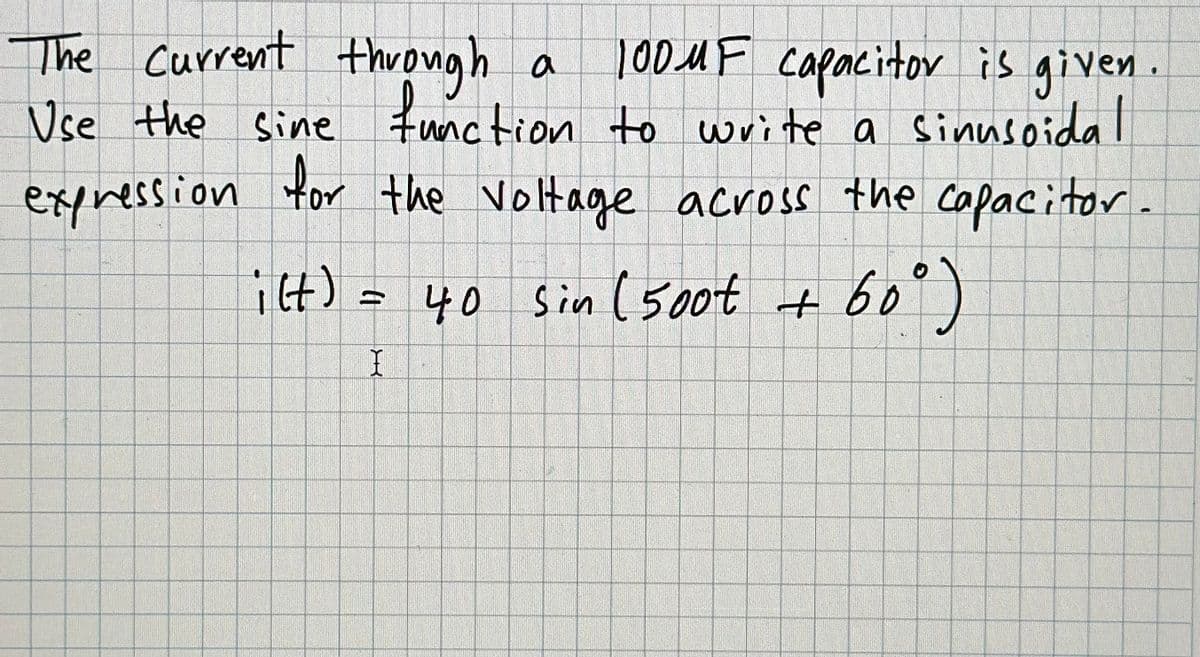 The current through a 100μF capacitor is given.
Use the sine function to write a sinusoidal
expression for the voltage across the capacitor.
i(t) = 40 sin (500t + 60°)